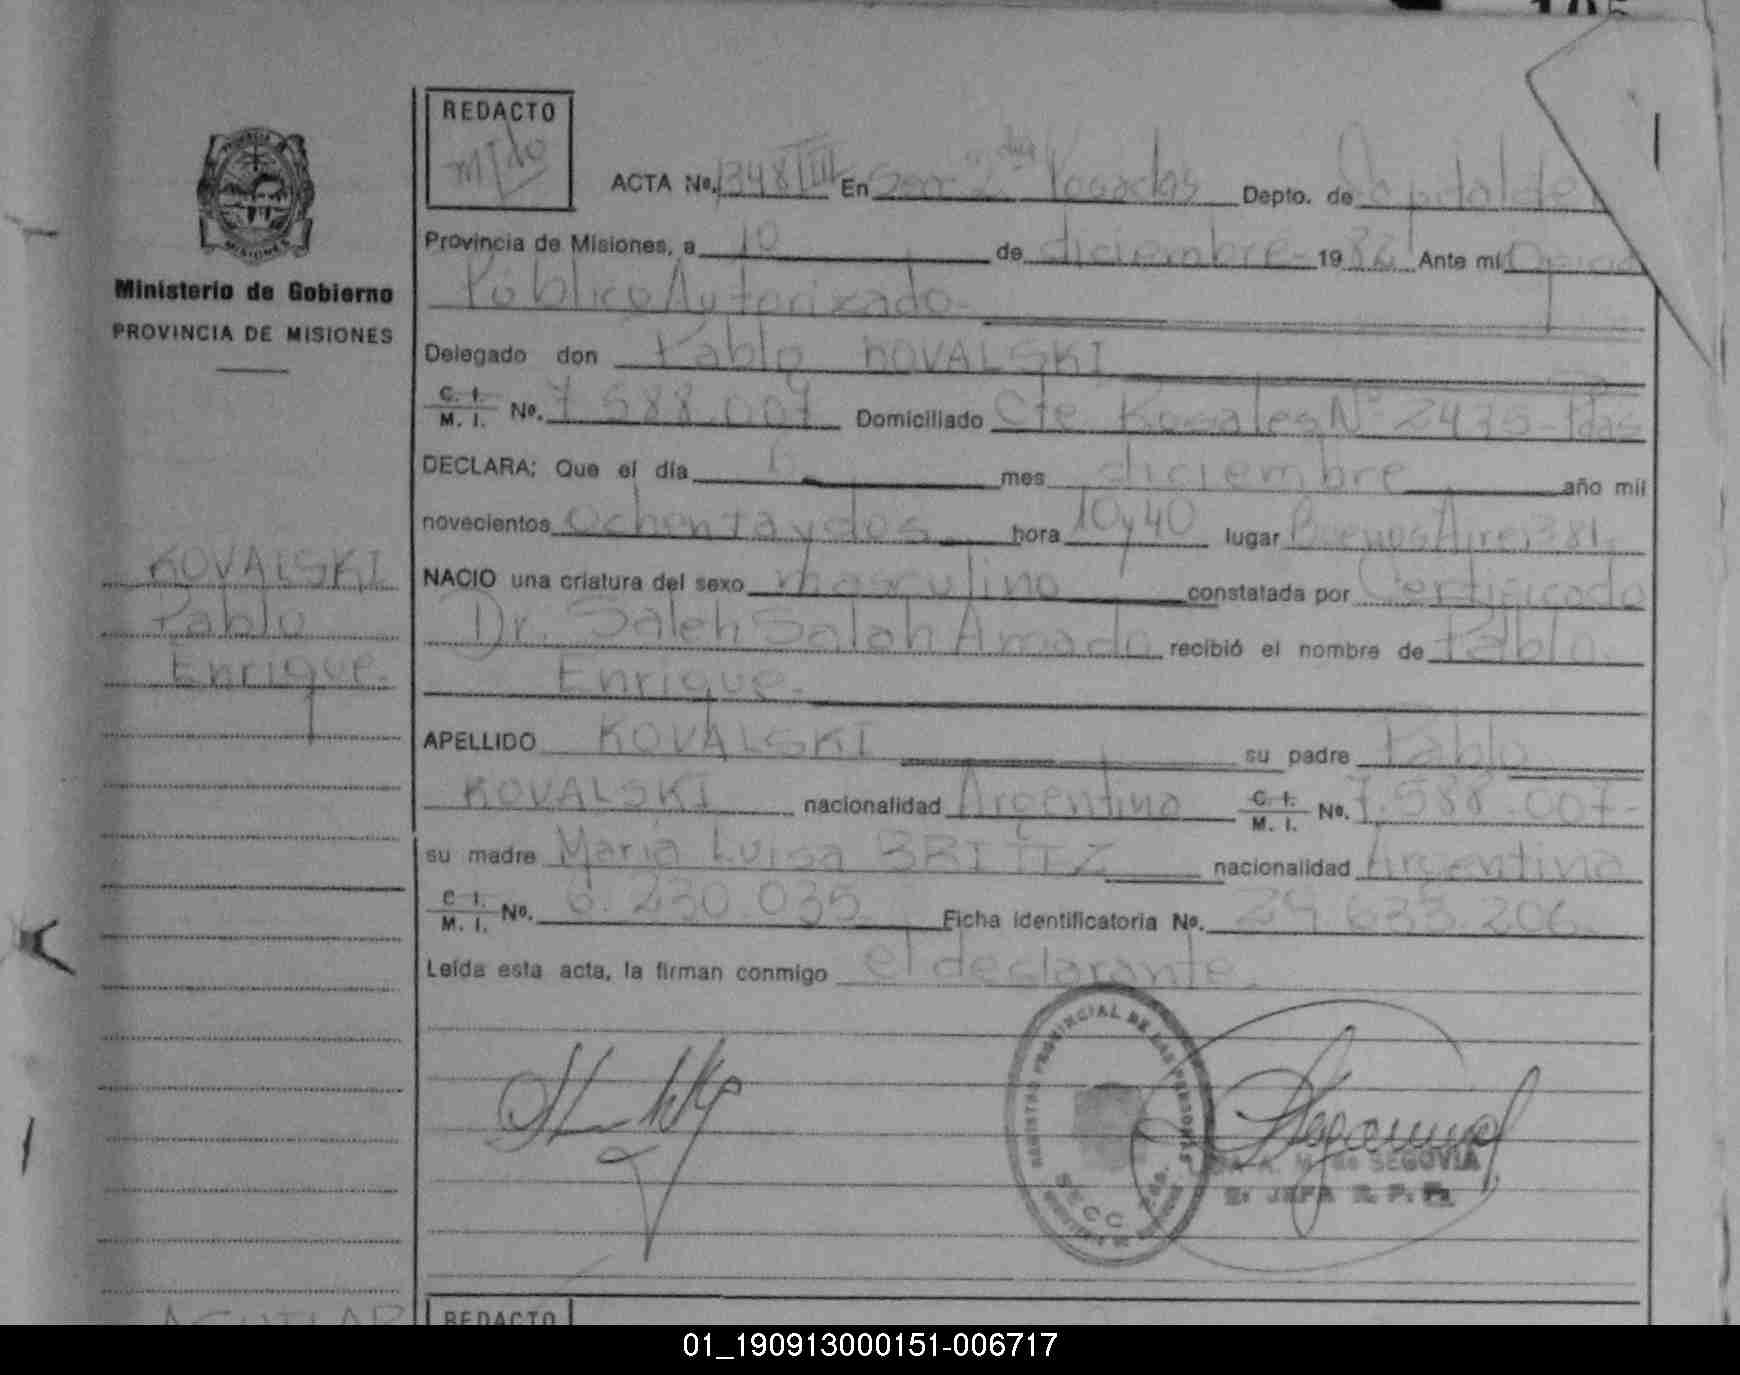 REDACTO
ACTA Nº. 1348 III En Secc 2da Posadas Depto. de Capital de
Provincia de Misiones, a 10 de diciembre 1982 Ante mí
Ministerio de Gobierno
PROVINCIA DE MISIONES
Público Autorizado.
Delegado don Pablo KOVALSKI
C. I. M. I. Nº. 7.588.007 Domiciliado Cte. Rosales Nº 2435 - Pdas
DECLARA: Que el día mes diciembre año mil
novecientos ochenta y dos hora 10 y 40 lugar Buenos Aires 381
KOVALSKI
Pablo
Enrique.
NACIO una criatura del sexo masculino constatada por Certificado
Dr. Saleh Salah Amado recibió el nombre de Pablo
Enrique.
APELLIDO KOVALSKI su padre Pablo
KOVALSKI nacionalidad Argentina C. I. M. I. Nº. 7.588.007-
su madre María Luisa BRITEZ nacionalidad Argentina
C. I. M. I. Nº. 6.230.035 Ficha identificatoria Nº. 29.633.206.
Leída esta acta, la firman conmigo el declarante.
REGISTRO PROVINCIAL DE LAS PERSONAS
SECC. 2da.
A. M. de SEGOVIA
JEFA R. P. P.
AGUILAR
REDACTO
01_190913000151-006717